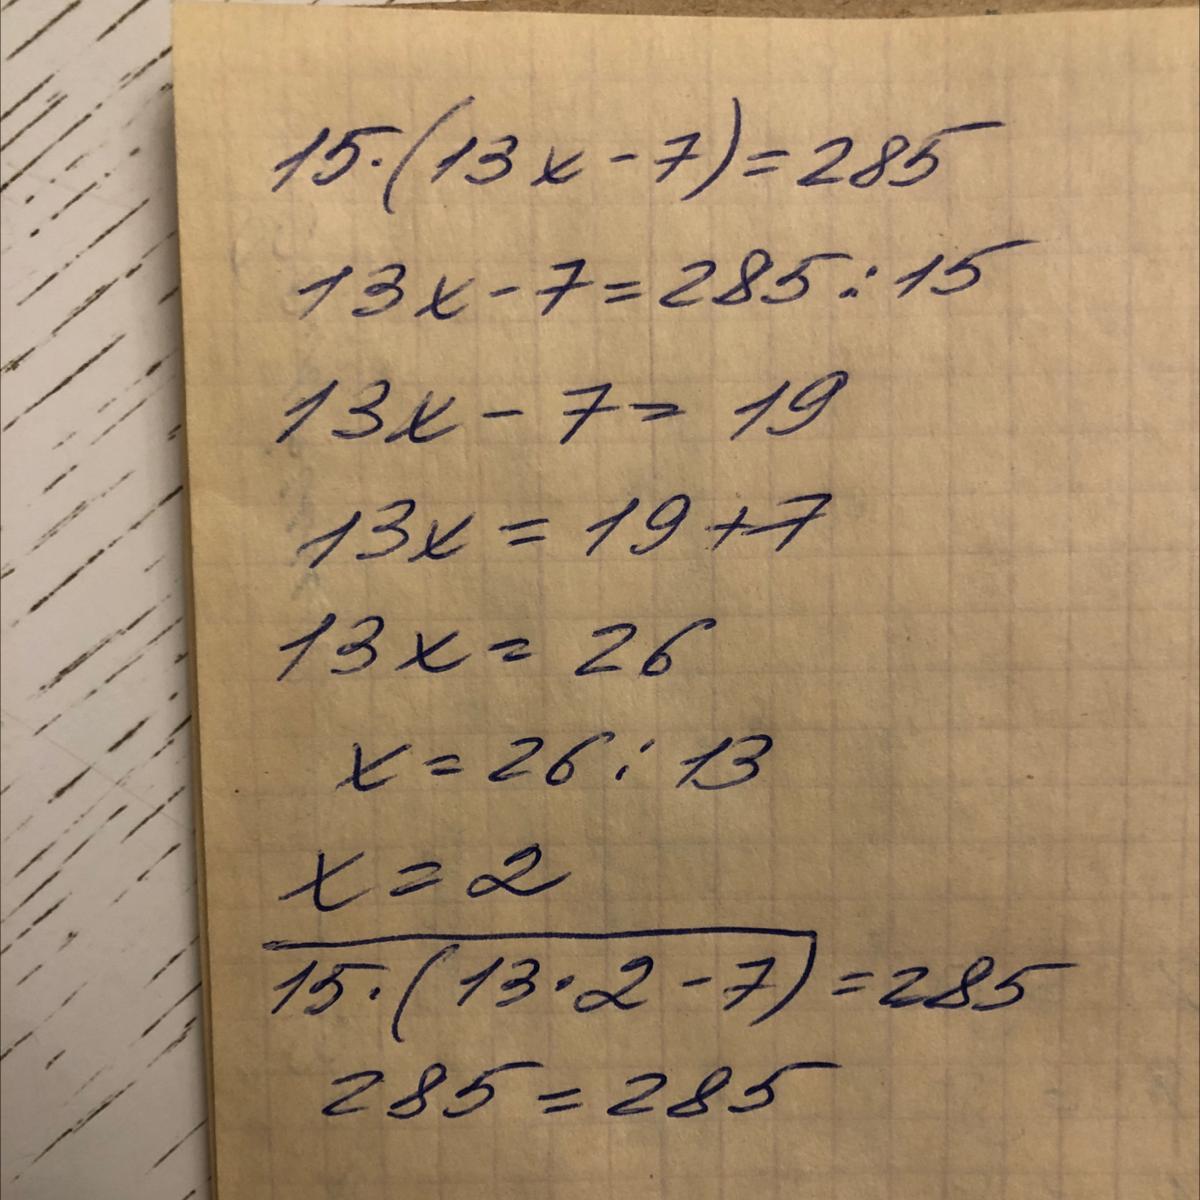 15·(13x-7)=285
13x-7=285:15
13x-7=19
13x=19+7
13x=26
x=26:13
x=2
15·(13·2-7)=285
285=285